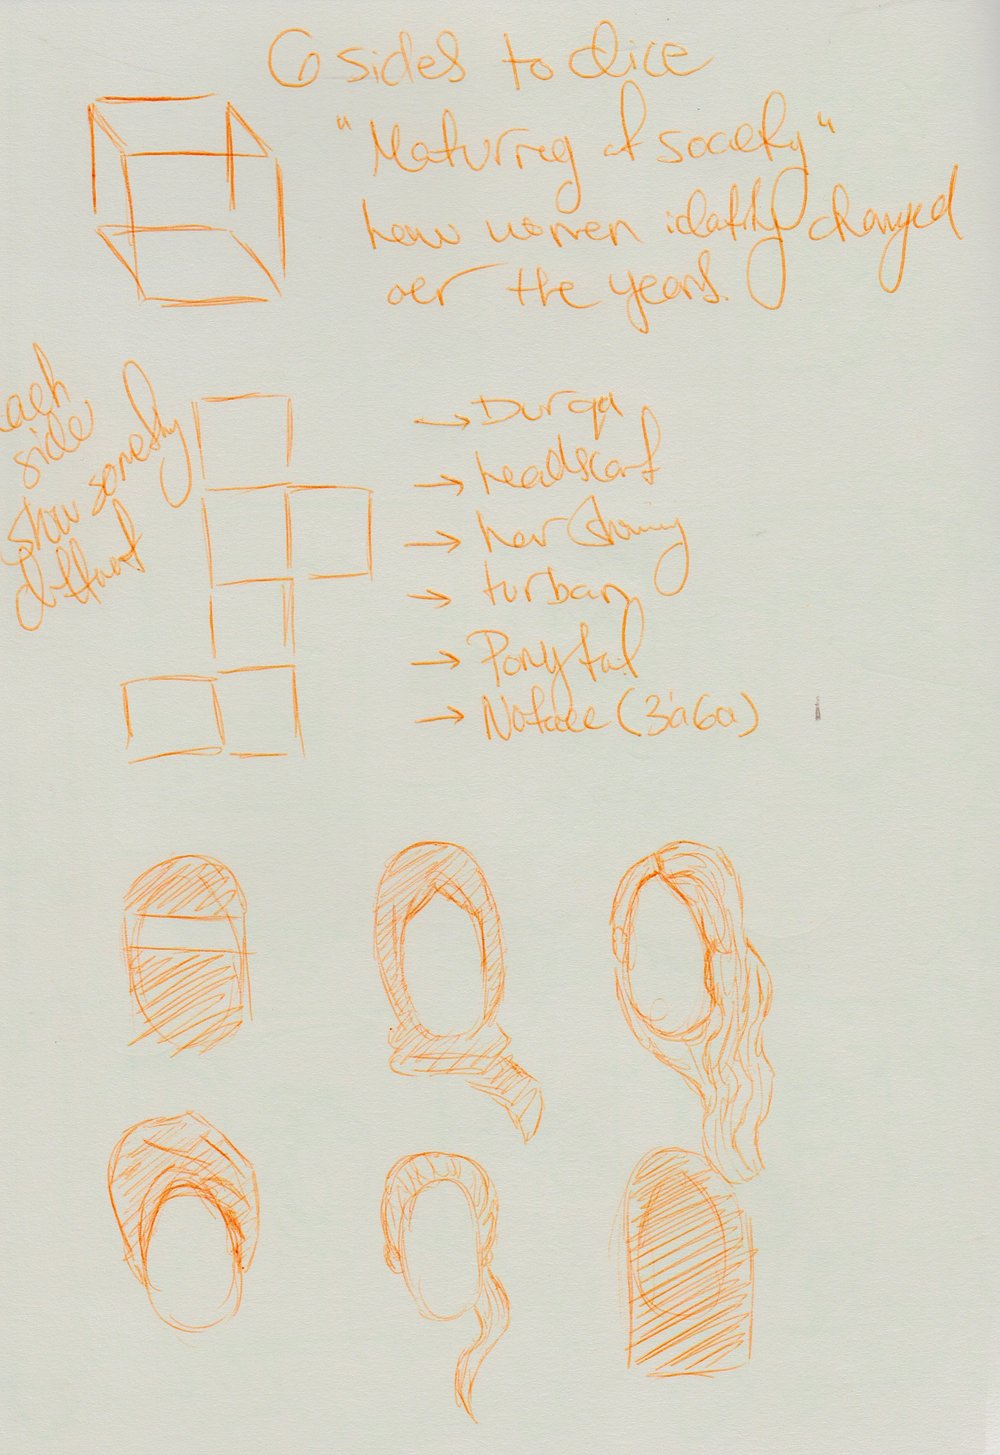 6 sides to dice
"Maturing of society"
how women idatity changed
over the years.
each
side
show somethig
diffrent
→ Burqa
→ headscarf
→ hair showing
→ turban
→ Ponytail
→ (3'a6a)